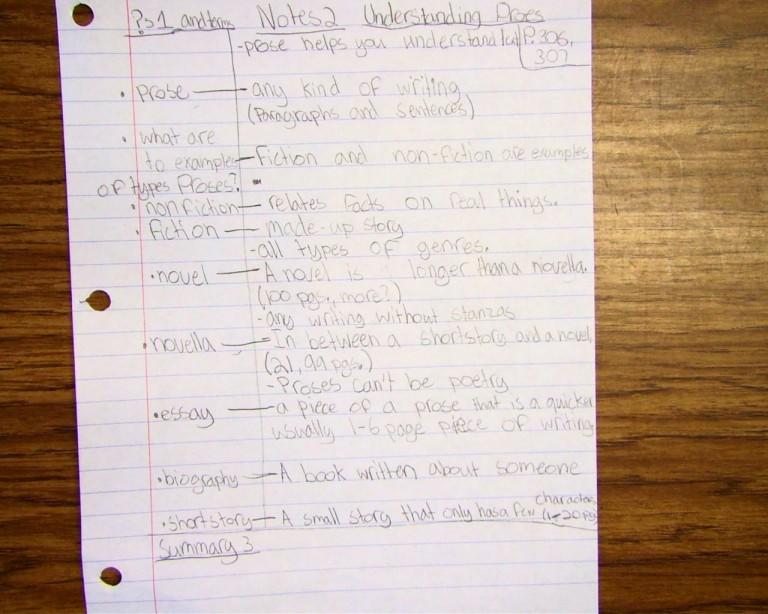 ?s 1 and terms Notes 2 Understanding Proses
-prose helps you understand P. 306,
307
• Prose — any kind of writing
(Paragraphs and sentences)
• what are
to examples — Fiction and non-fiction are examples
of types Proses? -
• nonfiction — relates facts on real things.
• fiction — made-up story
-all types of genres.
• novel — A novel is longer than a novella.
(100 pgs, more?)
-any writing without stanzas
• novella — In between a shortstory and a novel,
(21, 99 pgs.)
-Proses can't be poetry
• essay — a piece of a prose that is a quicker
usually 1-6 page piece of writing
• biography — A book written about someone
• shortstory — A small story that only has a few characters (1-20 pgs)
Summary 3